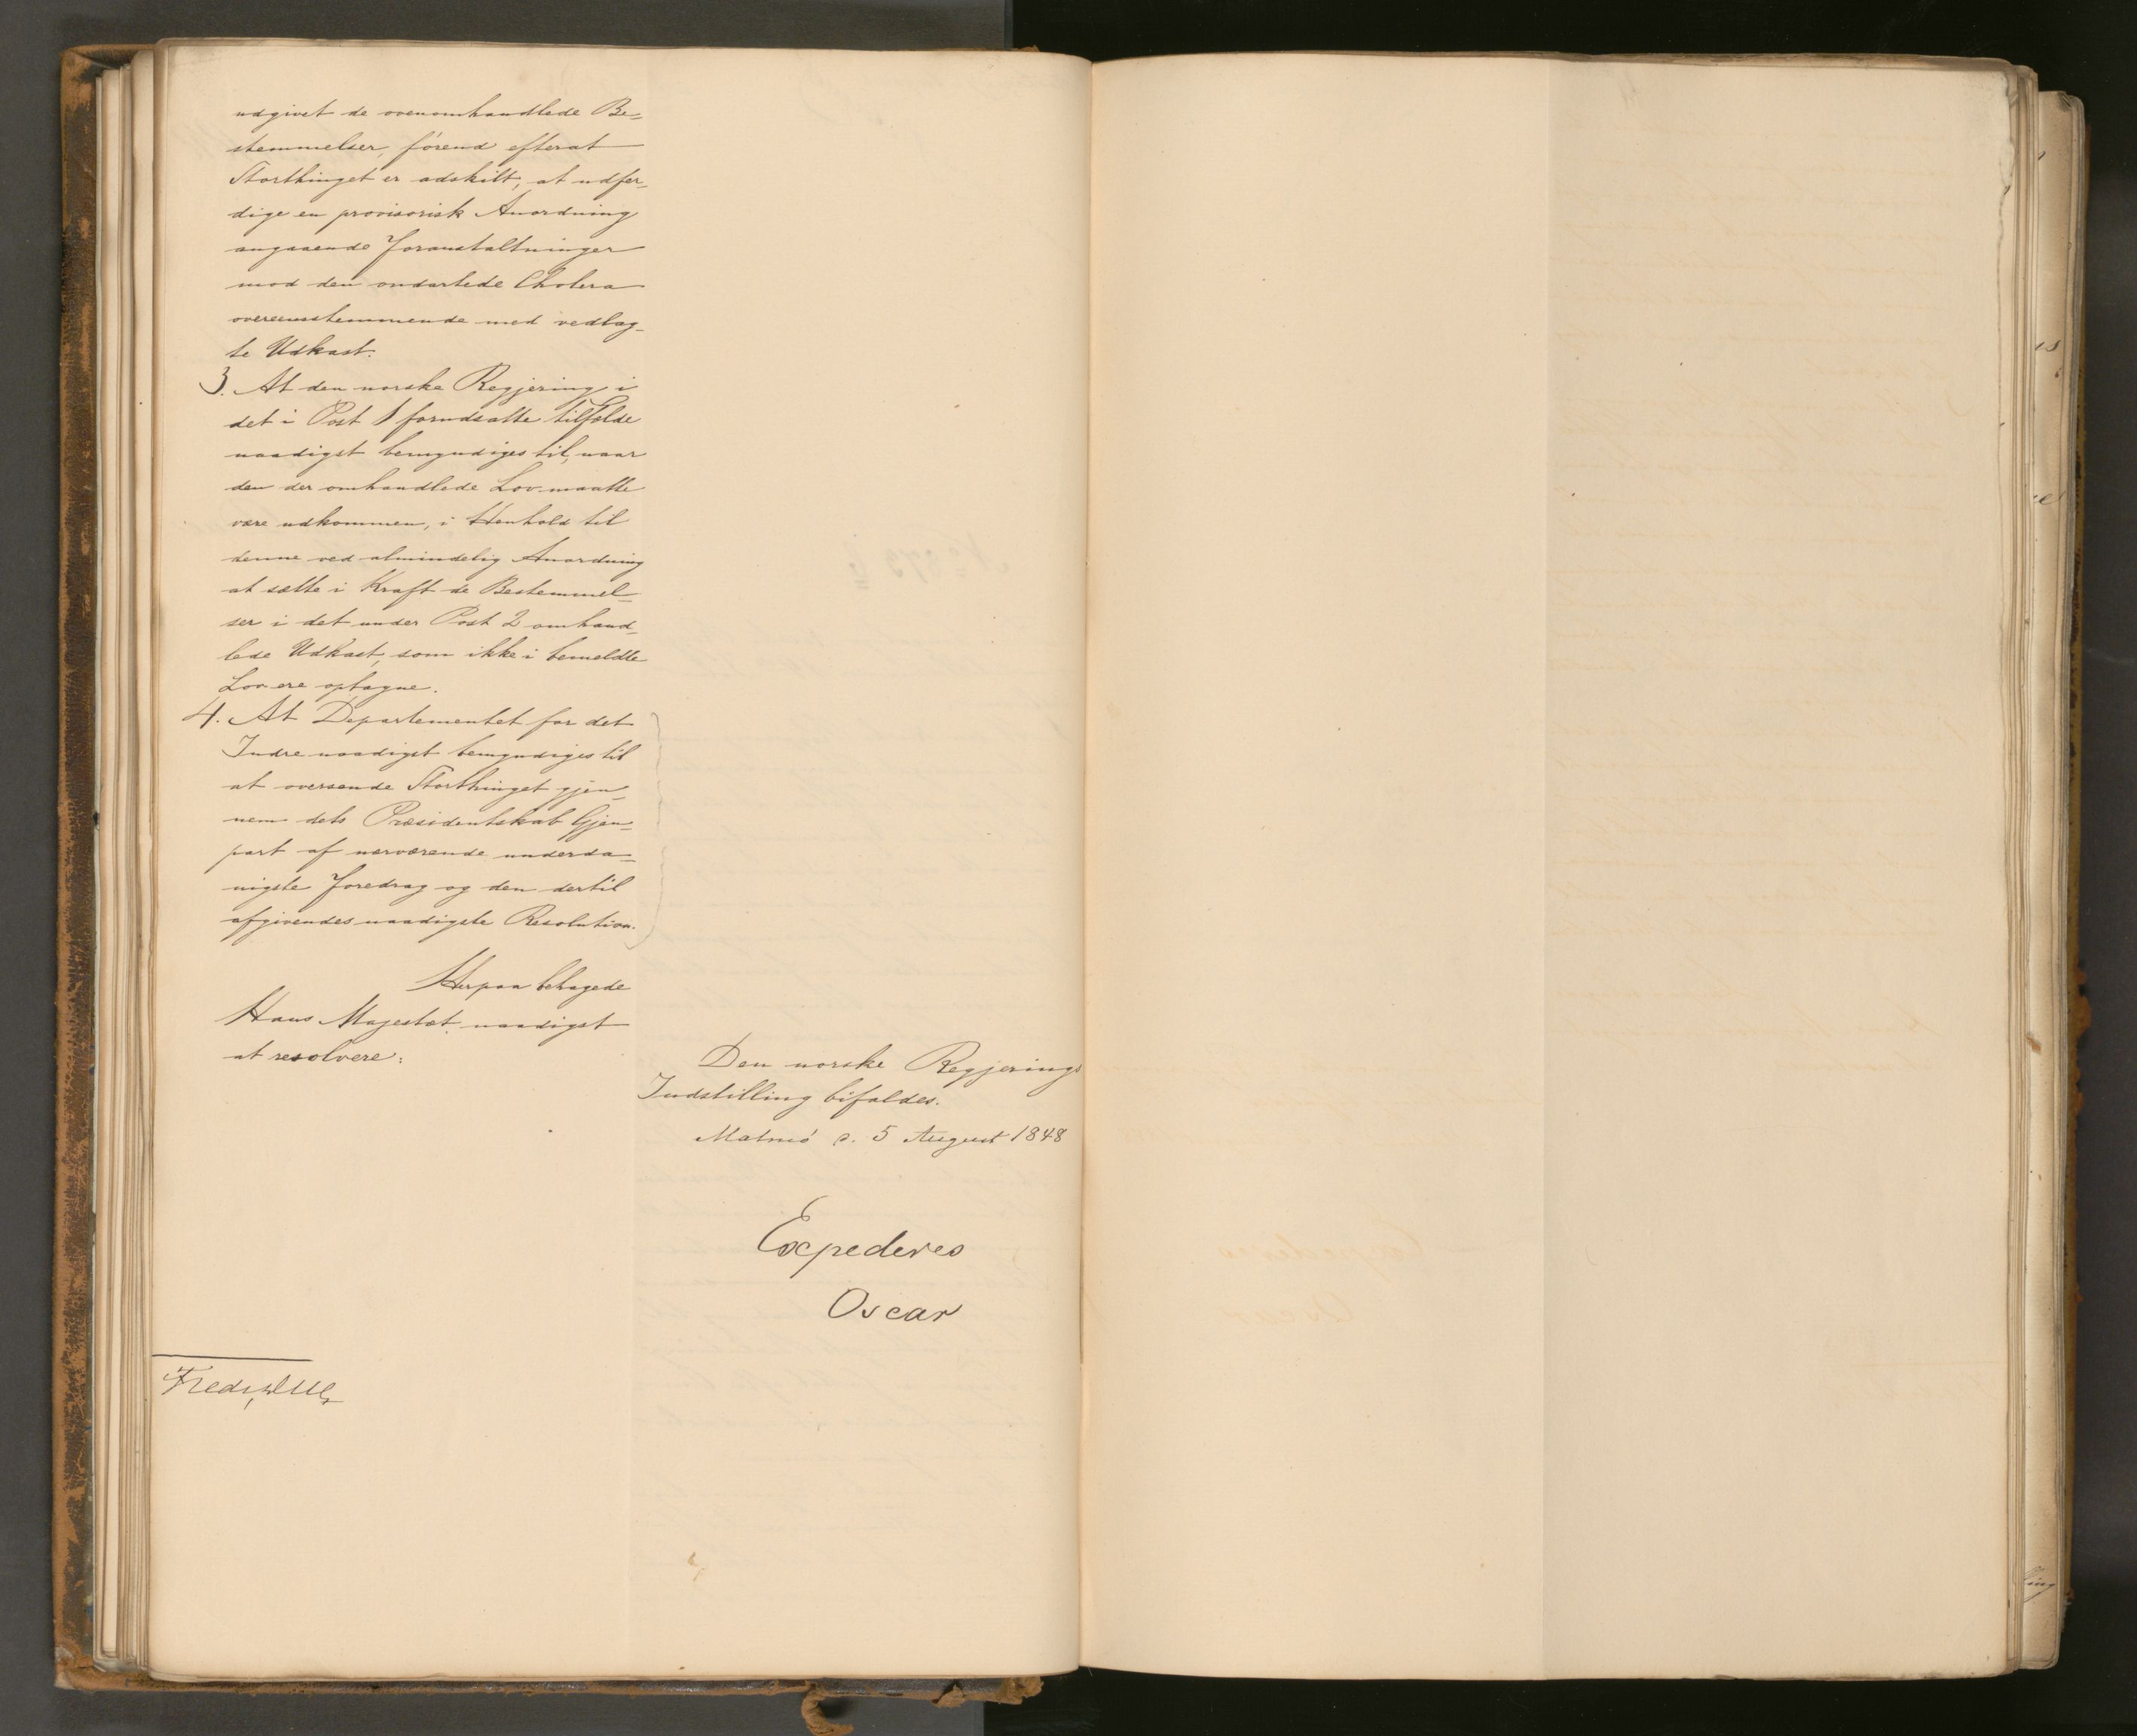 udgivet de ovenomhandlede Be-
stemmelser, førend efterat
Storthinget er adskilt, at udfær-
dige en provisorisk Anordning
angaaende Foranstaltninger
mod den ondartede Cholera
overeensstemmende med vedlag-
te Udkast.
3. At den norske Regjering i
det i Post 1 forudsatte Tilfælde
naadigst bemyndiges til, naar
den der omhandlede Lov maatte
være udkommen, i Henhold til
denne ved almindelig Anordning
at sætte i Kraft de Bestemmel-
ser i det under Post 2 omhand-
lede Udkast, som ikke i bemeldte
Lov ere optagne.
4. At Departementet for det
Indre naadigst bemyndiges til
at oversende Storthinget gjen-
nem dets Præsidentskab Gjen-
part af nærværende underda-
nigste Foredrag og den dertil
afgivendes naadigste Resolution.
Herpaa behagede
Hans Majestæt naadigst
at resolvere:
Den norske Regjerings
Indstilling bifaldes.
Malmö d. 5 August 1848
Expederes
Oscar